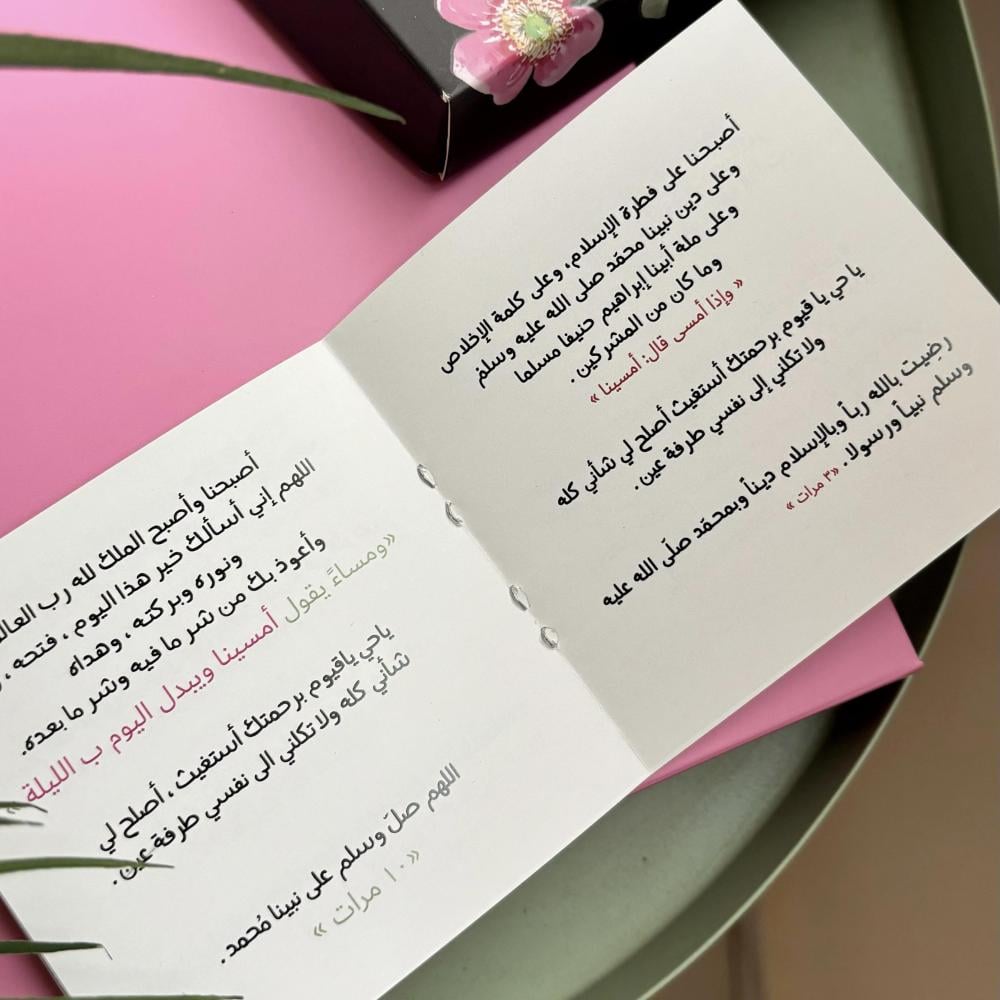 أصبحنا على فطرة الإسلام، وعلى كلمة الإخلاص
وعلى دين نبينا محمّد صلى الله عليه وسلم
وعلى ملة أبينا إبراهيم حنيفا مسلما
وما كان من المشركين .
« وإذا أمسى قال: أمسينا »
يا حي يا قيوم برحمتك أستغيث أصلح لي شأني كله
ولا تكلني إلى نفسي طرفة عين .
رضيت بالله رباً وبالإسلام ديناً وبمحمّد صلّى الله عليه
وسلم نبياً ورسولا. «٣ مرات »
أصبحنا وأصبح الملك لله رب
اللهم إني أسألك خير هذا اليوم ، فتحه ،
ونوره وبركته ، وهداه
وأعوذ بك من شر ما فيه وشر ما بعده.
«ومساءً يقول أمسينا ويبدل اليوم ب الليلة »
ياحي ياقيوم برحمتك أستغيث ، أصلح لي
شأني كله ولا تكلني الى نفسي طرفة عين .
اللهم صلَ وسلم على نبينا مُحمد .
«١٠ مرات »